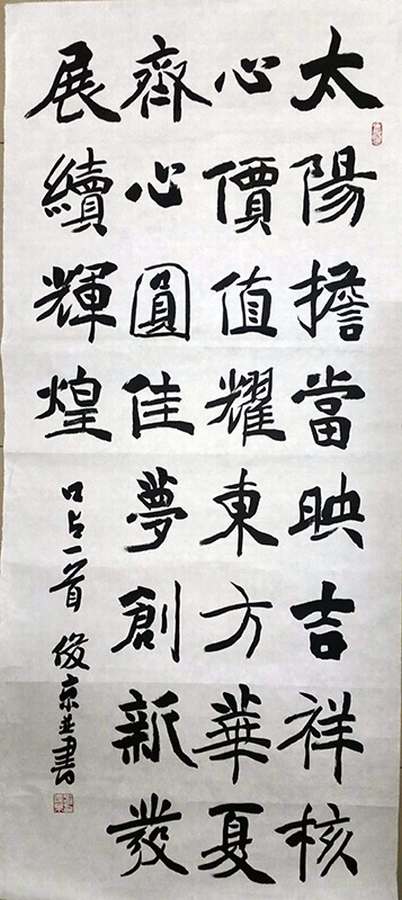 太陽擔當映吉祥核
心價值耀東方華夏
齊心圓佳夢創新發
展續輝煌
口占一首俊京並書